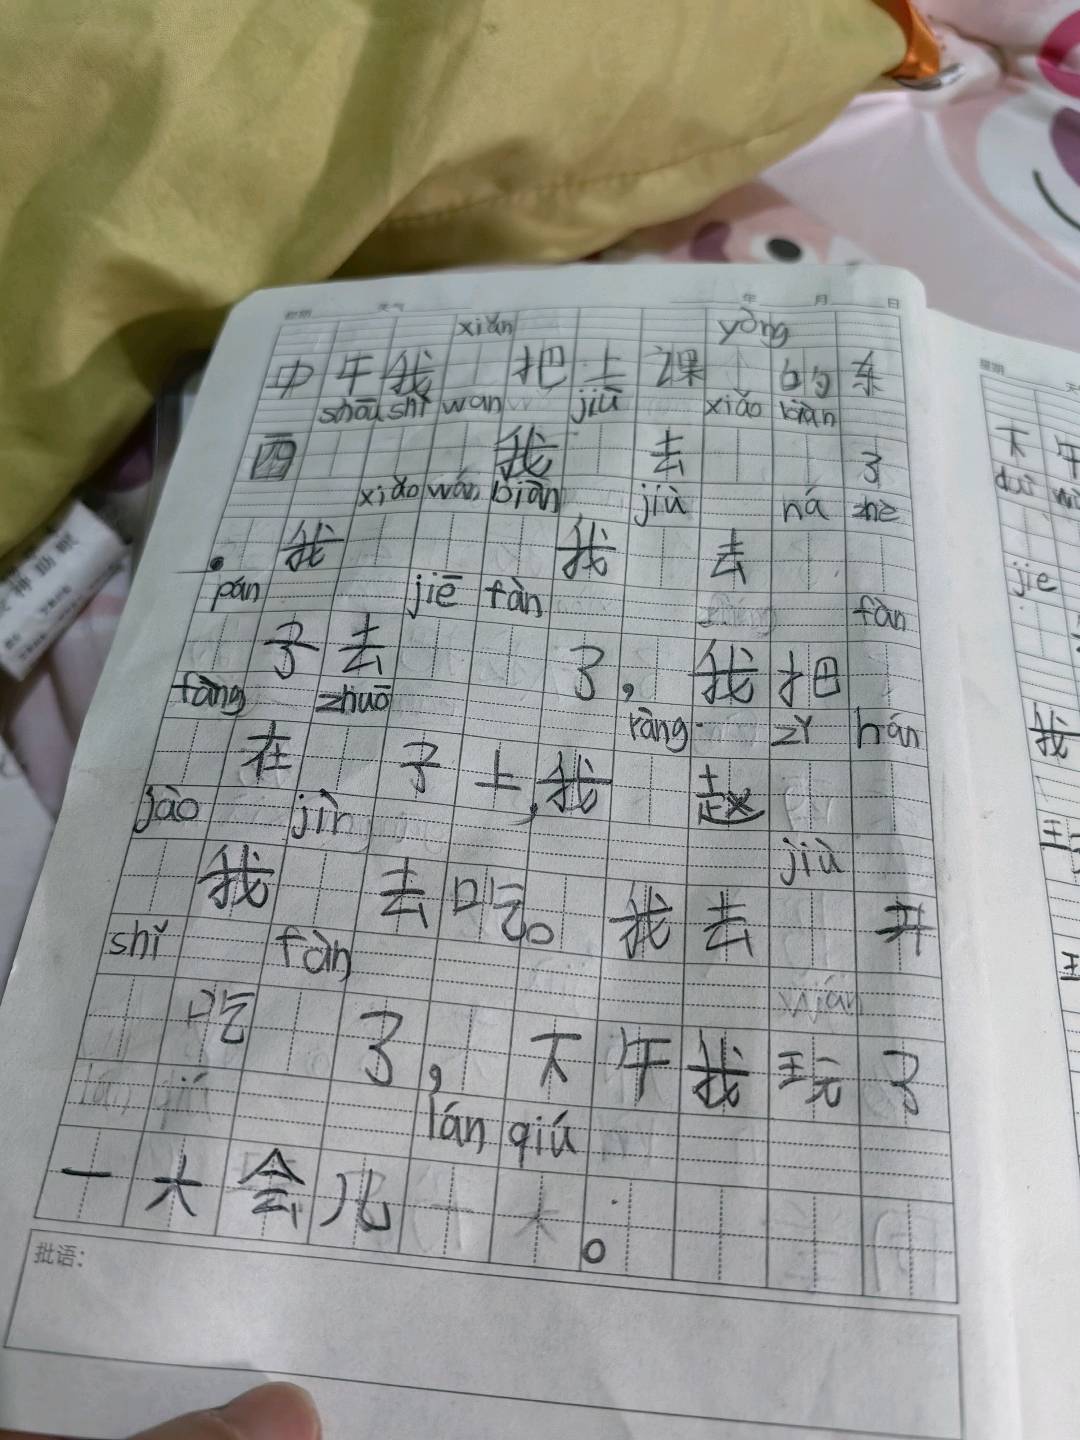 年 月 日
xiǎn yòng
中午我 把上课 的东
shāu shí wan jiū xiǎo biàn
西 我 去 了
xiǎo wán biàn jiù ná zhè
。我 我 去
pán jiē fàn fàn
子去 了，我把
fàng zhuō ràng zǐ hán
在 子上，我 赵
jào jìn jiù
我 去吃。我去 开
shǐ fàn
吃 了，下午我玩了
lán qiú
一大会儿 。
批语：